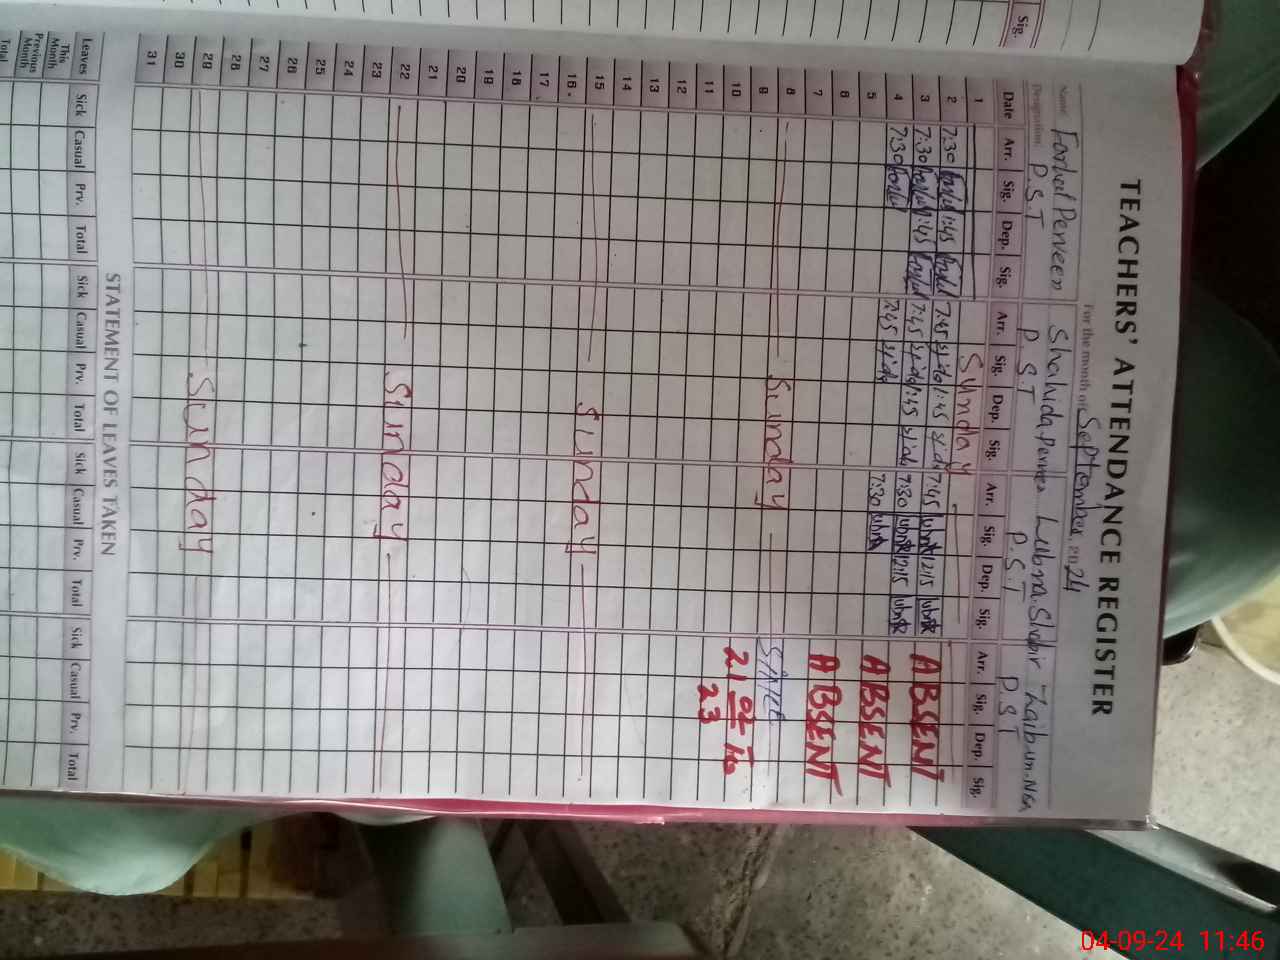 Sig.
TEACHERS' ATTENDANCE REGISTER
For the month of September, 2024
Name Farhat Perveen Shahida Perveen Lubna Shabir Zaibun-Nisa
Designation. P.S.T P.S.T P.S.T P.S.T
Date Arr. Sig. Dep. Sig. Arr. Sig. Dep. Sig. Arr. Sig. Dep. Sig. Arr. Sig. Dep. Sig.
1 Sunday
2 7:30 1:45 7:45 1:45 7:45 12:15
3 7:30 1:45 7:45 1:15 7:30 12:15 ABSENT
4 7:30 7:45 7:30
5 ABSENT
6
7 ABSENT
8 Sunday
9 SINCE
10 21
11 23
12
13
14
15 Sunday
16.
17
18
19
20
21
22 Sunday
23
24
25
26
27
28
29 Sunday
30
31
STATEMENT OF LEAVES TAKEN
Leaves Sick Casual Prv. Total Sick Casual Prv. Total Sick Casual Prv. Total Sick Casual Prv. Total
This Month
Previous Month
Total
04-09-24 11:46